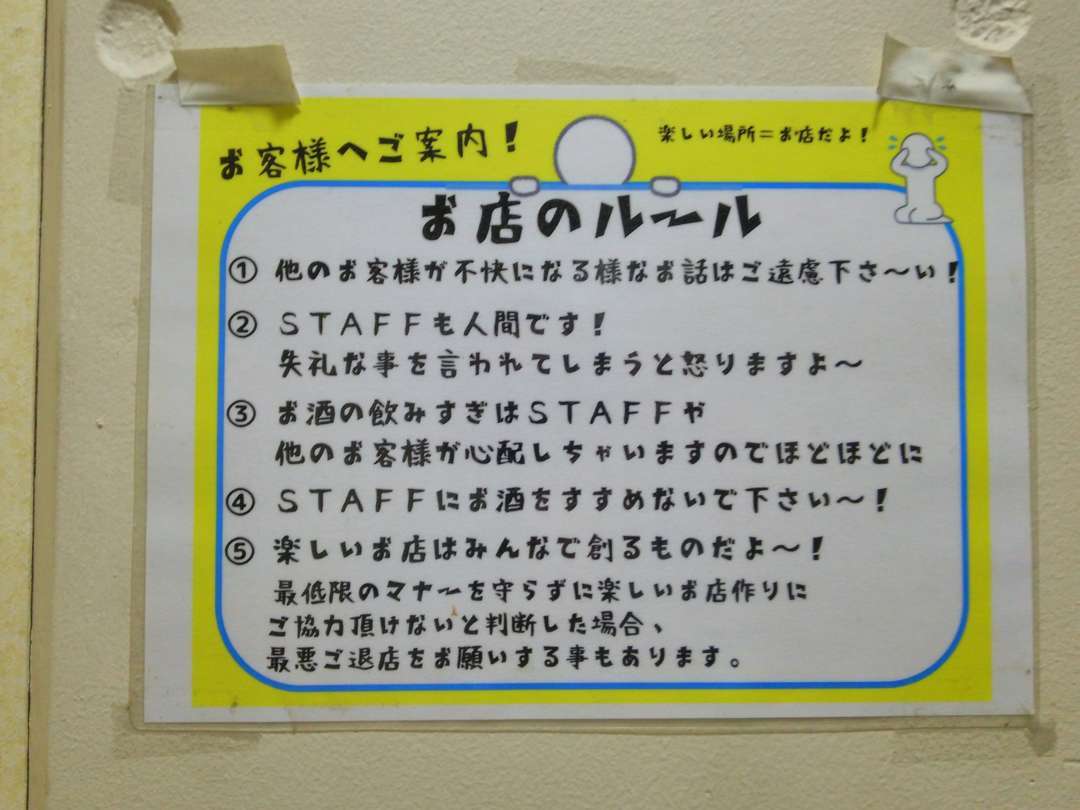 お客様へご案内！
楽しい場所＝お店だよ！
お店のルール
① 他のお客様が不快になる様なお話はご遠慮下さ～い！
② ＳＴＡＦＦも人間です！
失礼な事を言われてしまうと怒りますよ～
③ お酒の飲みすぎはＳＴＡＦＦや
他のお客様が心配しちゃいますのでほどほどに
④ ＳＴＡＦＦにお酒をすすめないで下さい～！
⑤ 楽しいお店はみんなで創るものだよ～！
最低限のマナーを守らずに楽しいお店作りに
ご協力頂けないと判断した場合、
最悪ご退店をお願いする事もあります。